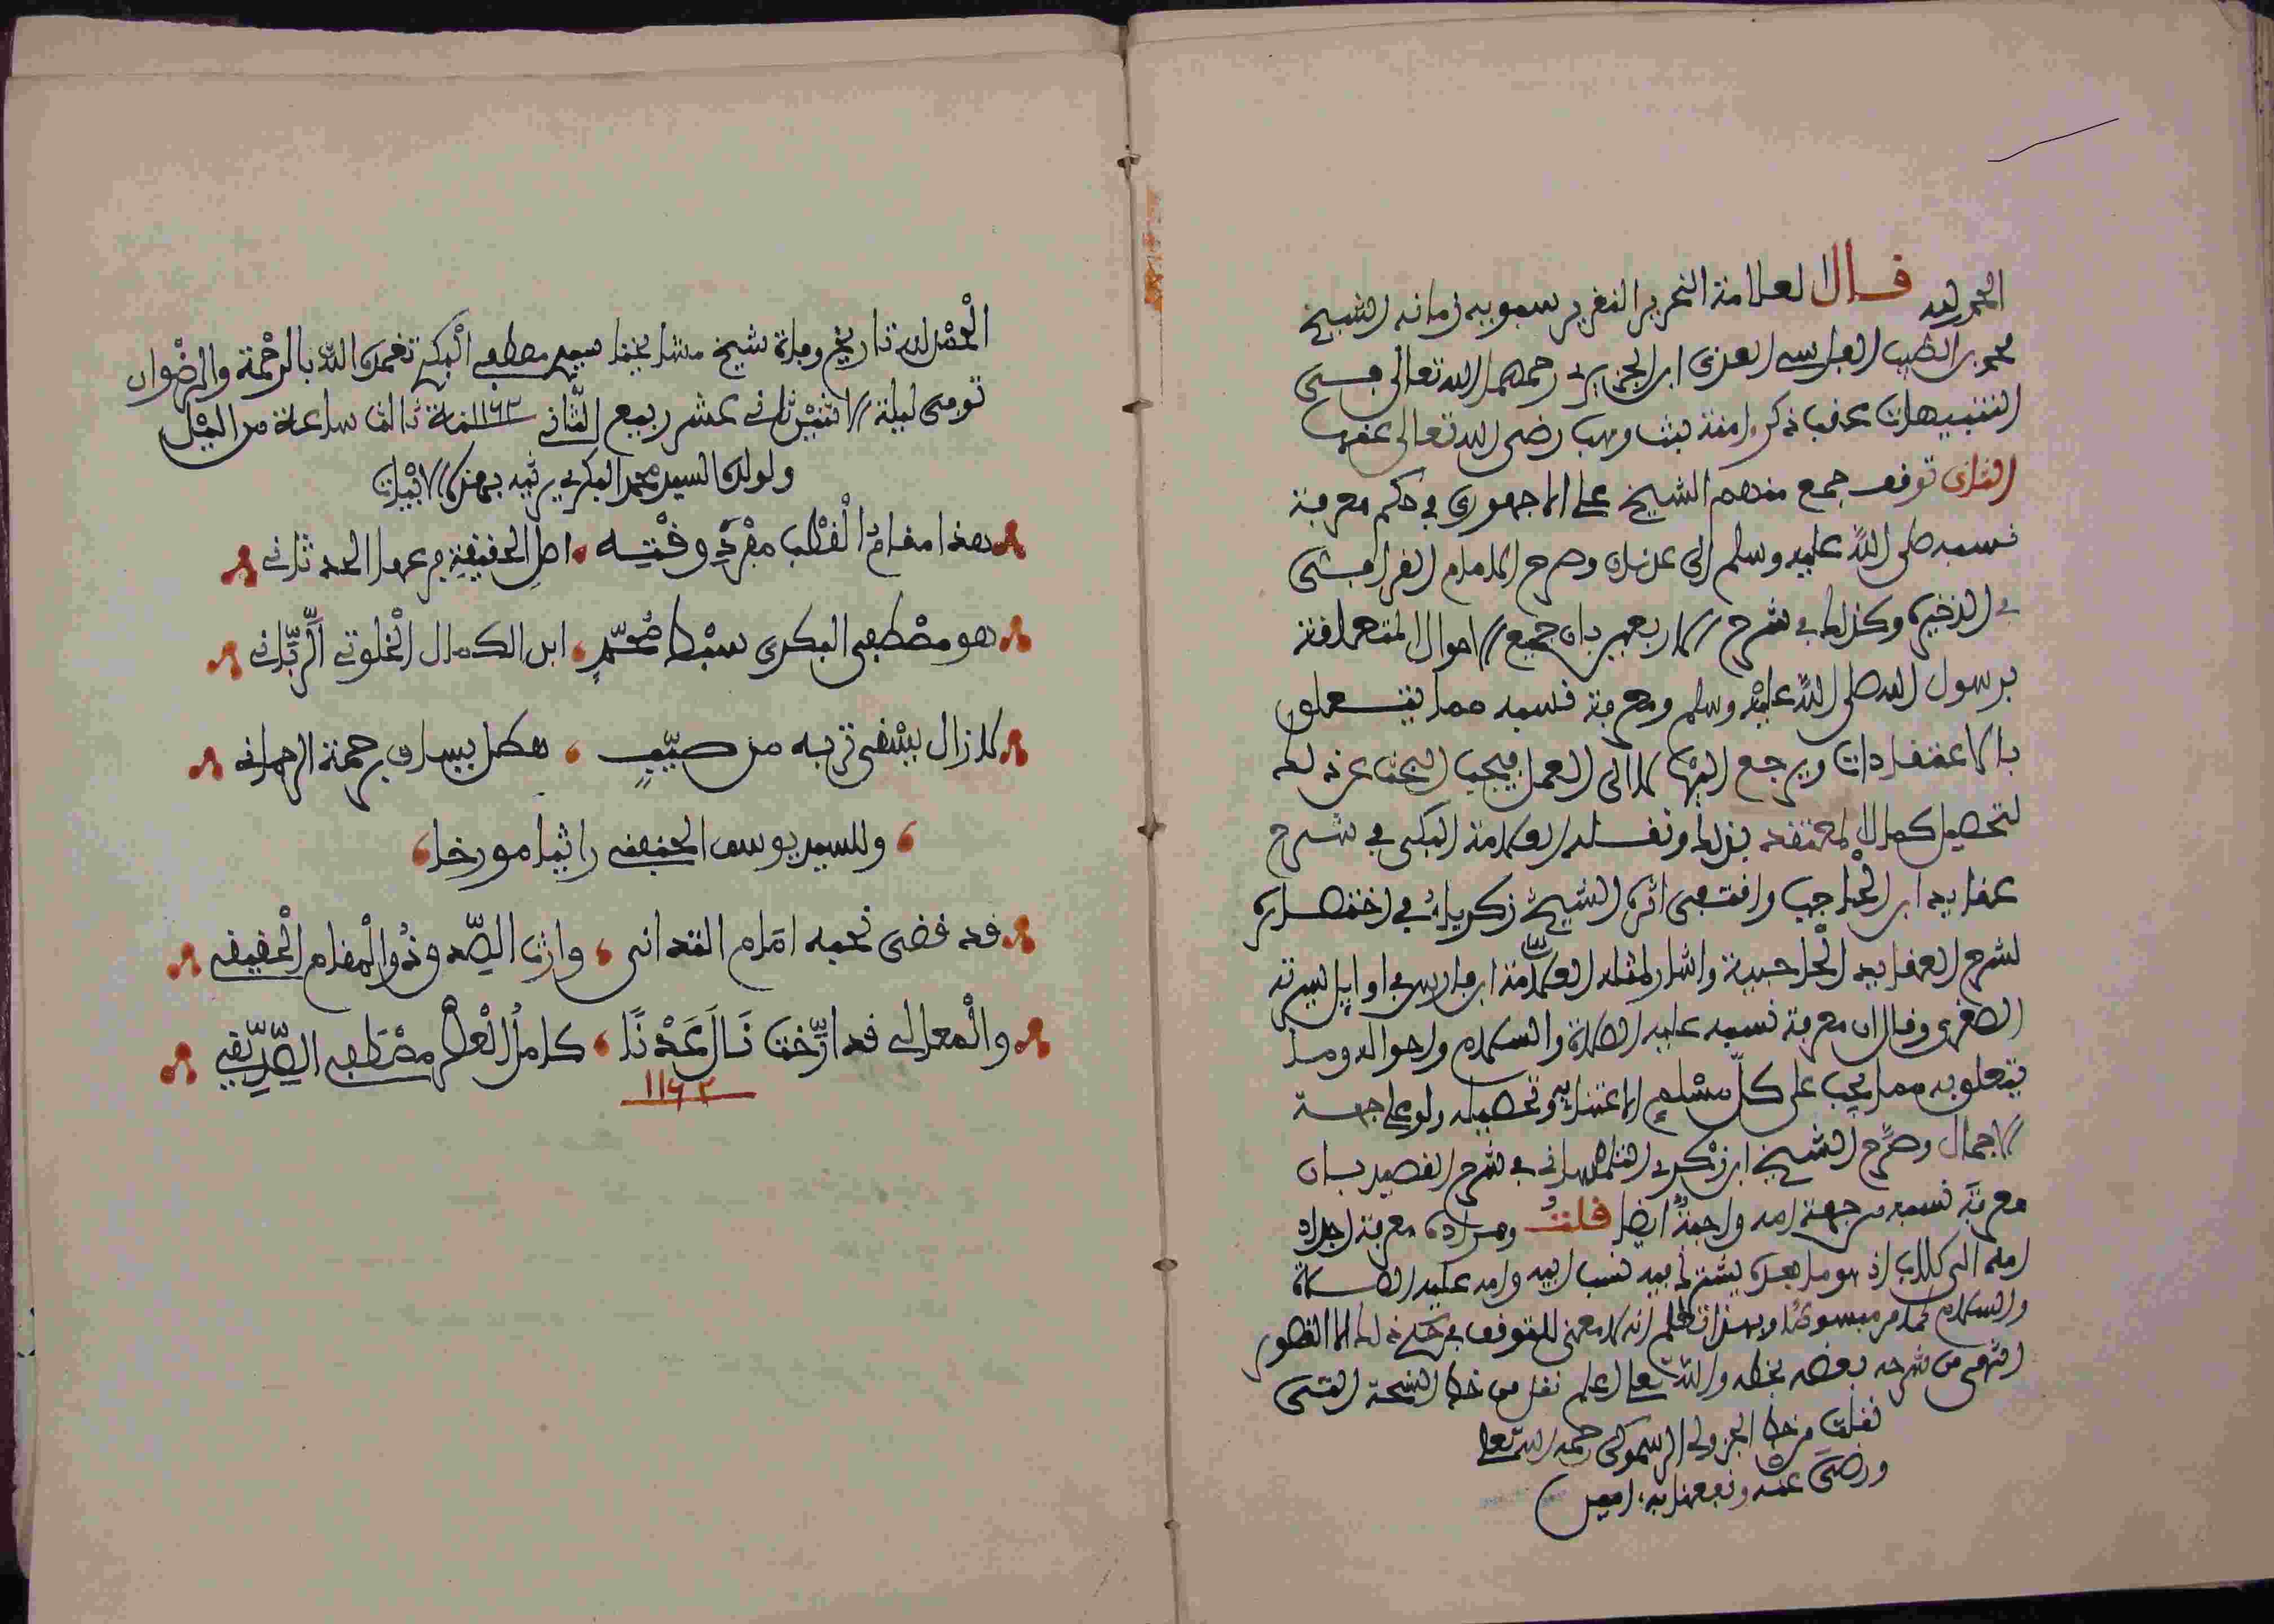 الحمد لله قال العلامة النحرير النغرير سيبويه زمانه الشيخ
محمد بن الطيب الفاسي ابن رحمهما الله تعالى في
التنبيهات عقب ذكر امنة بنت وهب رضي الله تعالى عنها
الثاني توقف جمع منهم الشيخ علي الاجهوري في حكم معرفة
نسبه صلى الله عليه وسلم الى عدنان وصرح الامام القرافي
في الذخيرة وكذلك في شرح الاربعين بان جميع الاحوال المتعلقة
برسول الله صلى الله عليه وسلم ومعرفة نسبه مما يتعلق
بالاعتقادات ويرجع اليها لا الى العمل فيجب البحث عن ذلك
لتحصيل كمال المعتقد بذلك ونقله العلامة البكي في شرح
عقايد ابن الحاجب واقتفى اثره الشيخ زكرياء في اختصاره
لشرح العقايد الحاجبية واشار لمثله العلامة ابن فارس في اوايل سيرته
الصغرى وقال ان معرفة نسبه عليه الصلاة والسلام واحواله وما
يتعلق به مما يجب على كل مسلم الاعتناء به وتحصيله ولو على جهة
الاجمال وصرح الشيخ ابن زكري التلمساني في شرح القصيد بان
معرفة نسبه من جهة امه واجبة ايضا قلت ومراده معرفة اجداد
امه الى كلاب اذ هو وما بعده يشترك فيه نسب ابيه وامه عليه الصلاة
والسلام كما مر مبسوطا وبهذا تعلم انه لا معنى للتوقف في حكم ذلك الا القصور
انتهى من شرحه بعضه بخطه والله تعالى اعلم نقل من خط النسخة التي
نقلت من خط الجزولي الرسموكي رحمه الله تعالى
ورضي عنه ونفعنا به امين
الحمد لله تاريخ وفاة شيخ مشايخنا سيدي مصطفى البكري تغمده الله بالرحمة والرضوان
توفي ليلة الاثنين ثاني عشر ربيع الثاني سنة ١١٦٢ ثالث ساعة من الليل
ولولده السيد محمد البكري يرثيه بهذه الابيات
هذا مقام القطب مفرد وقته ، اصل الحقيقة فرعها الحدثاني
هو مصطفى البكري سبط محمد ، ابن الكمال الخلوتي الرباني
لا زال يسقى تربه من صيب ، هطل يساق برحمة الرحمان
، وللسيد يوسف الحفني راثيا مورخا ،
قد قضى نحبه امام التداني ، وارث الصدق ذو المقام الحقيقي
والمعالي قد ارخت نال عدنا ، كامل العلم مصطفى الصديقي
١١٦٢